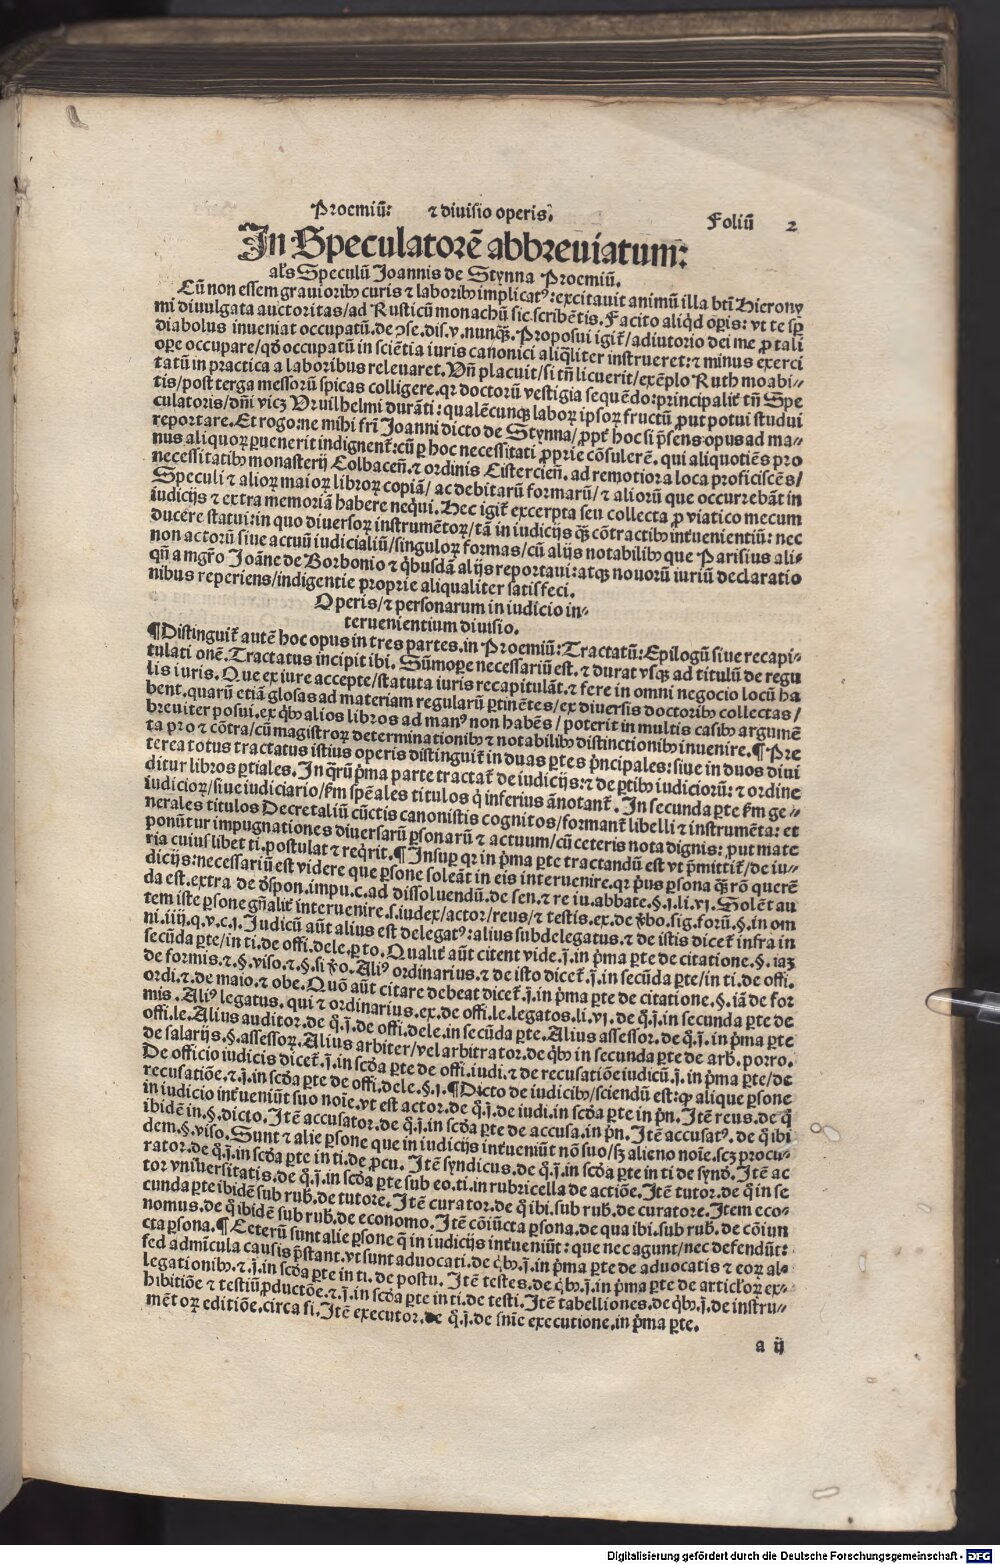 Proemiū: ⁊ diuisio operis.
Foliū 2
In Speculatorē abbreuiatum:
al's Speculū Joannis de Stynna Proemiū.
Cū non essem grauioribꝰ curis ⁊ laboribꝰ implicatꝰ: excitauit animū illa btī Hierony
mi diuulgata auctoritas/ad Rusticū monachū sic scribētis. Facito aliqd opis: vt te sp
diabolus inueniat occupatū. de ꝯse. dis. v. nunqꝫ. Proposui igit̄/adiutorio dei me ꝓ tali
ope occupare/qd occupatū in sciētia iuris canonici aliqliter instrueret: ⁊ minus exerci
tatū in practica a laboribus releuaret. Vn̄ placuit/si tn̄ licuerit/exēplo Ruth moabi-
tis/post terga messorū spicas colligere. qr doctorū vestigia sequēdo: principalit̄ tn̄ Spe
culatoris/dn̄i vicꝫ Vvuilhelmi durāti: qualēcunqꝫ laboꝝ ipsoꝝ fructū ꝓut potui studui
reportare. Et rogo: ne mihi fr̄i Joanni dicto de Stynna/ꝓpt̄ hoc si p̄sens opus ad ma-
nus aliquoꝝ puenerit indignent̄: cū p hoc necessitati ꝓprie cōsulerē. qui aliquotiēs pro
necessitatibꝰ monasterij Colbaceñ. ⁊ ordinis Cistercieñ. ad remotiora loca proficiscēs/
Speculi ⁊ alioꝝ maioꝝ libroꝝ copiā/ ac debitarū formarū/ ⁊ aliorū que occurrebāt in
iudicijs ⁊ extra memoriā habere nequi. Hec igit̄ excerpta seu collecta ꝓ viatico mecum
ducere statui: in quo diuersoꝝ instrumētoꝝ/tā in iudicijs qꝫ cōtractibꝰ int̄uenientiū: nec
non actorū siue actuū iudicialiū/singuloꝝ formas/cū alijs notabilibꝰ que Parisius ali-
qn̄ a mgr̄o Joāne de Borbonio ⁊ qbusdā alijs reportaui: atqꝫ nouorū iuriū declaratio
nibus reperiens/indigentie proprie aliqualiter satisfeci.
Operis/⁊ personarum in iudicio in-
teruenientium diuisio.
¶Distinguit̄ autē hoc opus in tres partes. in Proemiū: Tractatū: Epilogū siue recapi-
tulati onē. Tractatus incipit ibi. Sūmope necessariū est. ⁊ durat vsqꝫ ad titulū de regu
lis iuris. Que ex iure accepte/statuta iuris recapitulāt. ⁊ fere in omni negocio locū ha
bent. quarū etiā glosas ad materiam regularū ptinētes/ex diuersis doctoribꝰ collectas/
breuiter posui. ex qbꝰ alios libros ad manꝰ non habēs/ poterit in multis casibꝰ argumē
ta pro ⁊ cōtra/cū magistroꝝ determinationibꝰ ⁊ notabilibꝰ distinctionibꝰ inuenire. ¶ Pre
terea totus tractatus istius operis distinguit̄ in duas ptes pncipales: siue in duos diui
ditur libros ptiales. In qrū pma parte tractat̄ de iudicijs: ⁊ de ptibꝰ iudiciorū: ⁊ ordine
iudicioꝝ/siue iudiciario/fm spēales titulos q inferius ānotant̄. In secunda pte fm ge-
nerales titulos Decretaliū cūctis canonistis cognitos/formant̄ libelli ⁊ instrumēta: et
ponūtur impugnationes diuersarū psonarū ⁊ actuum/cū ceteris nota dignis: ꝓut mate
ria cuius libet ti. postulat ⁊ reqrit. ¶ Insup qr in pma pte tractandū est vt pmittit̄/de iu-
dicijs: necessariū est videre que psone soleāt in eis interuenire. qr pus psona qꝫ rō querē
da est. extra de dspon. impu. c. ad dissoluendū. de sen. ⁊ re iu. abbate. §. j. li. vj. Solēt au
tem iste psone gn̄alit̄ interuenire. s. iudex/actor/reus/⁊ testis. ex. de vbo. sig. forū. §. in om
ni. iiij. q. v. c. j. Judicū aūt alius est delegatꝰ: alius subdelegatus. ⁊ de istis dicet̄ infra in
secūda pte/in ti. de offi. dele. p to. Qualit̄ aūt citent vide. j. in pma pte de citatione. §. iaꝫ
de formis. ⁊ §. viso. ⁊ §. si vo. Aliꝰ ordinarius. ⁊ de isto dicet̄. j. in secūda pte/in ti. de offi.
ordi. ⁊ de maio. ⁊ obe. Quō aūt citare debeat dicet̄. j. in pma pte de citatione. §. iā de for
mis. Aliꝰ legatus. qui ⁊ ordinarius. ex. de offi. le. legatos. li. vj. de q. j. in secunda pte de
offi. le. Alius auditor. de q. j. de offi. dele. in secūda pte. Alius assessor. de q. j. in pma pte
de salarijs. §. assessoꝝ. Alius arbiter/vel arbitrator. de qbꝰ in secunda pte de arb. porro.
De officio iudicis dicet̄. j. in scda pte de offi. iudi. ⁊ de recusatiōe iudicū. j. in pma pte/de
recusatiōe. ⁊. j. in scda pte de offi. dele. §. j. ¶Dicto de iudicibꝰ/sciendū est: qꝫ alique psone
in iudicio int̄ueniūt suo noīe. vt est actor. de q. j. de iudi. in scda pte in pn̄. Itē reus. de q
ibidē in. §. dicto. Itē accusator. de q. j. in scda pte de accusa. in pn̄. Itē accusatꝰ. de q ibi
dem. §. viso. Sunt ⁊ alie psone que in iudicijs int̄ueniūt nō suo/sꝫ alieno noīe. scꝫ procu-
rator. de q. j. in scda pte in ti. de ꝓcu. Itē syndicus. de q. j. in scda pte in ti de synd. Itē ac
tor vniuersitatis. de q. j. in scda pte sub eo. ti. in rubricella de actiōe. Itē tutor. de q in se
cunda pte ibidē sub rub. de tutore. Itē curator. de q ibi. sub rub. de curatore. Item eco-
nomus. de q ibidē sub rub. de economo. Itē cōiūcta psona. de qua ibi. sub rub. de cōiun
cta psona. ¶ Ceterū sunt alie psone q in iudicijs int̄ueniūt: que nec agunt/nec defendūt:
sed admīcula causis pstant. vt sunt aduocati. de qbꝰ. j. in pma pte de aduocatis ⁊ eoꝝ al-
legationibꝰ. ⁊. j. in scda pte in ti. de postu. Itē testes. de qbꝰ. j. in pma pte de articloꝝ ex-
hibitiōe ⁊ testiū ꝓductōe. ⁊. j. in scda pte in ti. de testi. Itē tabelliones. de qbꝰ. j. de instru-
mētoꝝ editiōe. circa fi. Itē executor. de q. j. de snīe executione. in pma pte.
a ij
Digitalisierung gefördert durch die Deutsche Forschungsgemeinschaft - DFG